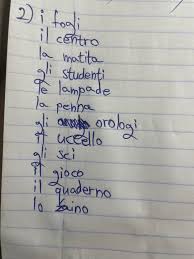 2) i fogli
il centro
la matita
gli studenti
le lampade
la penna
gli orologi
il uccello
gli sci
il gioco
il quaderno
lo zaino